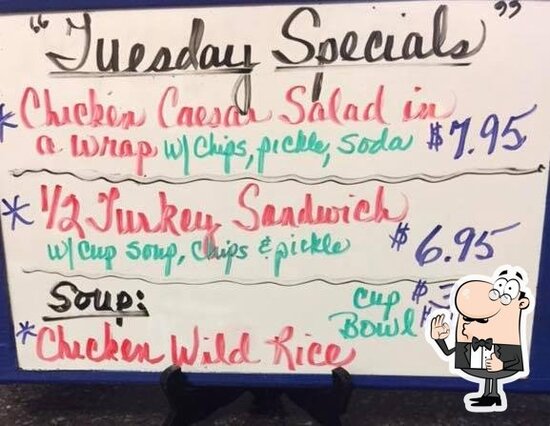 "Tuesday Specials"
* Chicken Caesar Salad in
a wrap w/ Chips, pickle, soda $7.95
* 1/2 Turkey Sandwich
w/ cup soup, chips & pickle $6.95
Soup: cup $
Bowl $
* Chicken Wild Rice